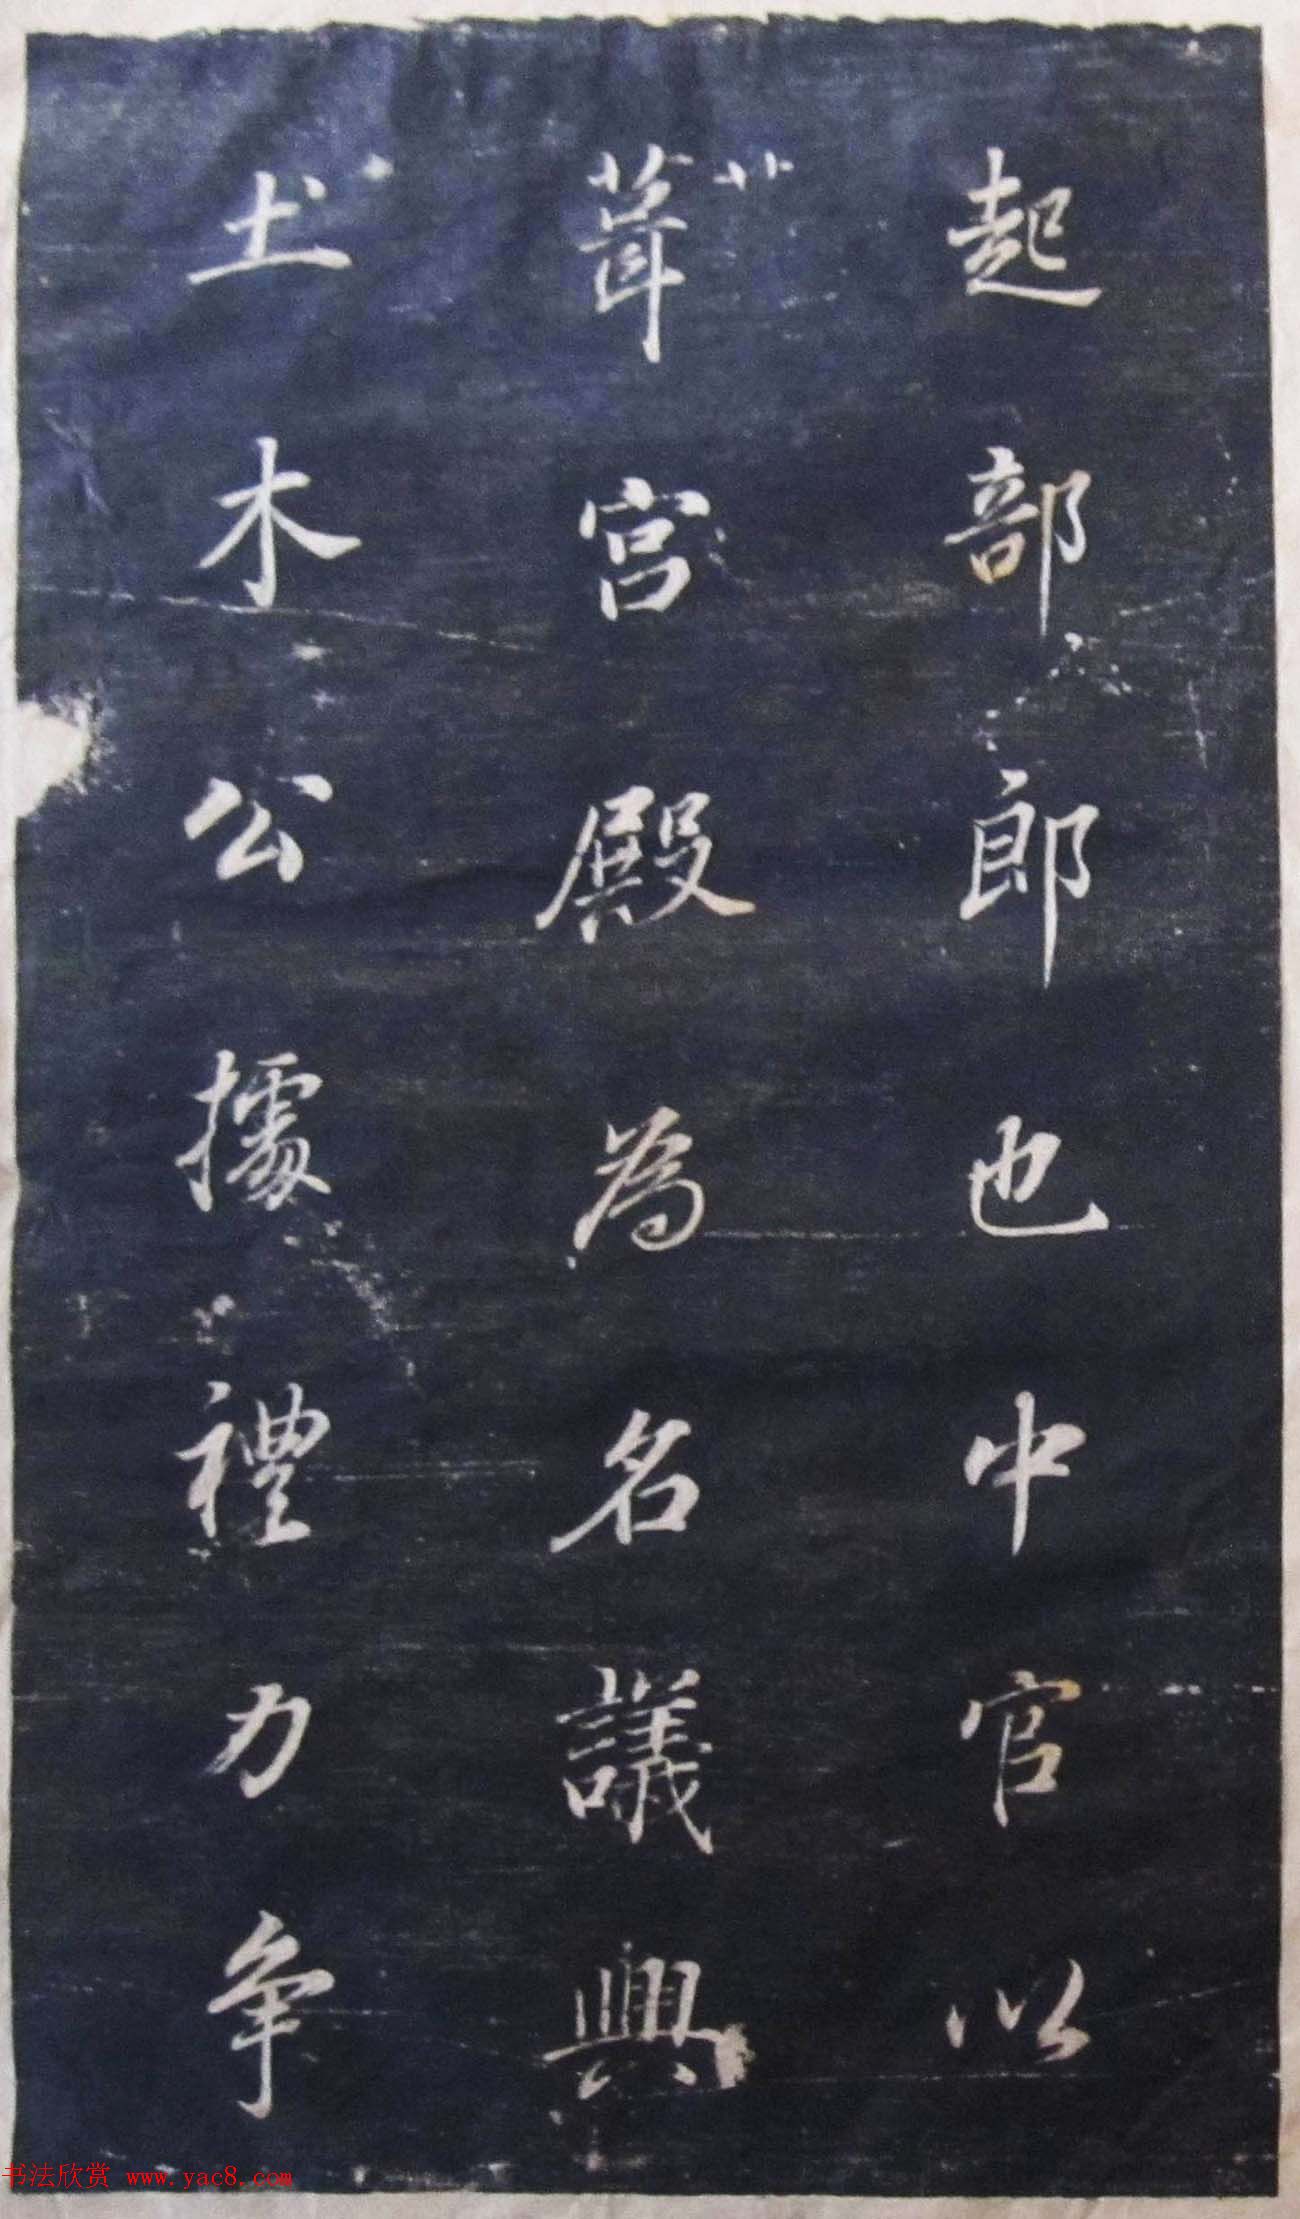 起部郎也中官以
葺宮殿為名議興
土木公據禮力爭
书法欣赏 www.yac8.com